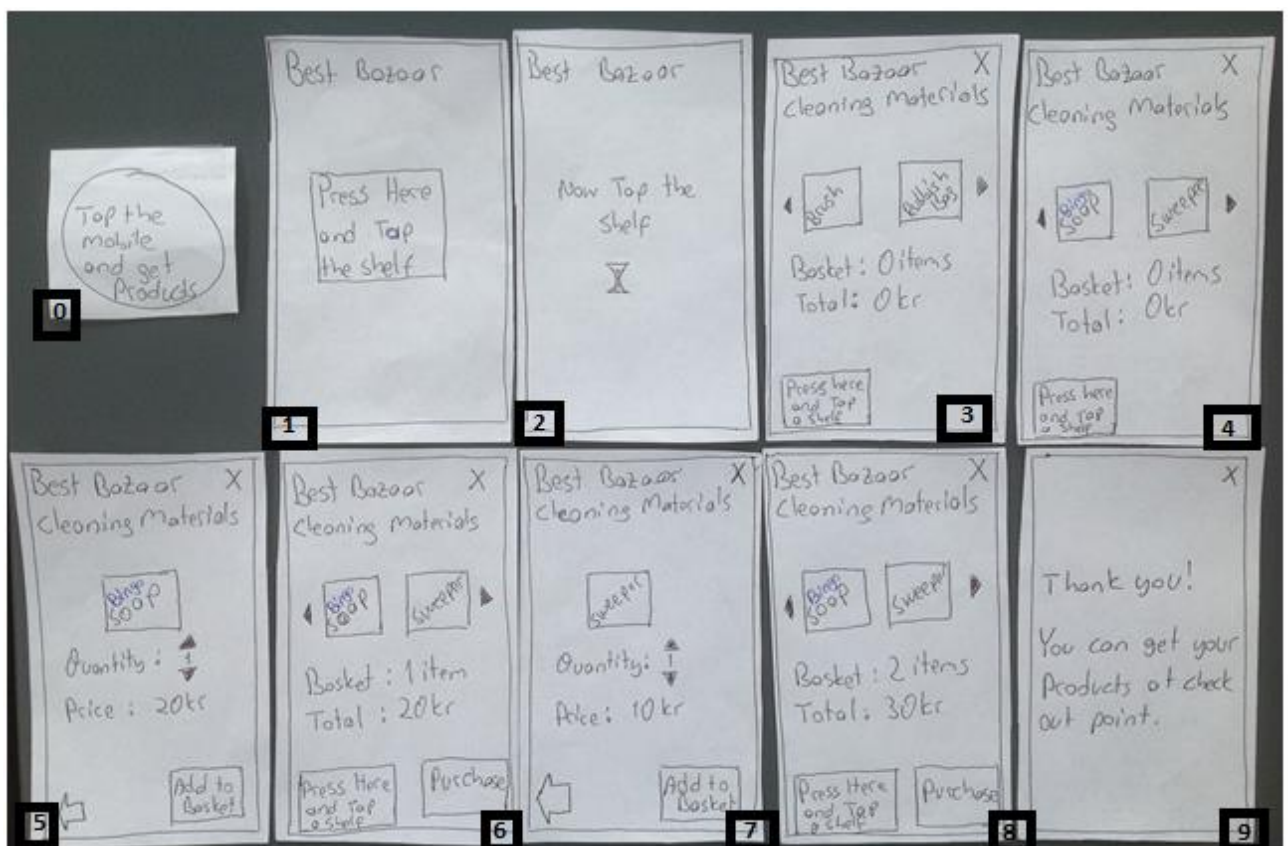 Tap the
mobile
and get
Products
0
Best Bazaar
Press Here
and Tap
the shelf
1
Best Bazaar
Now Tap the
shelf
2
Best Bazaar X
Cleaning Materials
Brush
Rubbish
Bag
Basket: 0 items
Total: 0kr
Press here
and Tap
a shelf
3
Best Bazaar X
Cleaning Materials
Bingo
Soap
Sweeper
Basket: 0 items
Total: 0kr
Press here
and Tap
a shelf
4
Best Bazaar X
Cleaning Materials
Bingo
Soap
Quantity: 1
Price: 20kr
Add to
Basket
5
Best Bazaar X
Cleaning Materials
Bingo
Soap
Sweeper
Basket: 1 item
Total: 20kr
Press Here
and Tap
a shelf
Purchase
6
Best Bazaar X
Cleaning Materials
Sweeper
Quantity: 1
Price: 10kr
Add to
Basket
7
Best Bazaar X
Cleaning Materials
Bingo
Soap
Sweeper
Basket: 2 items
Total: 30kr
Press Here
and Tap
a shelf
Purchase
8
X
Thank you!
You can get your
Products at check
out point.
9